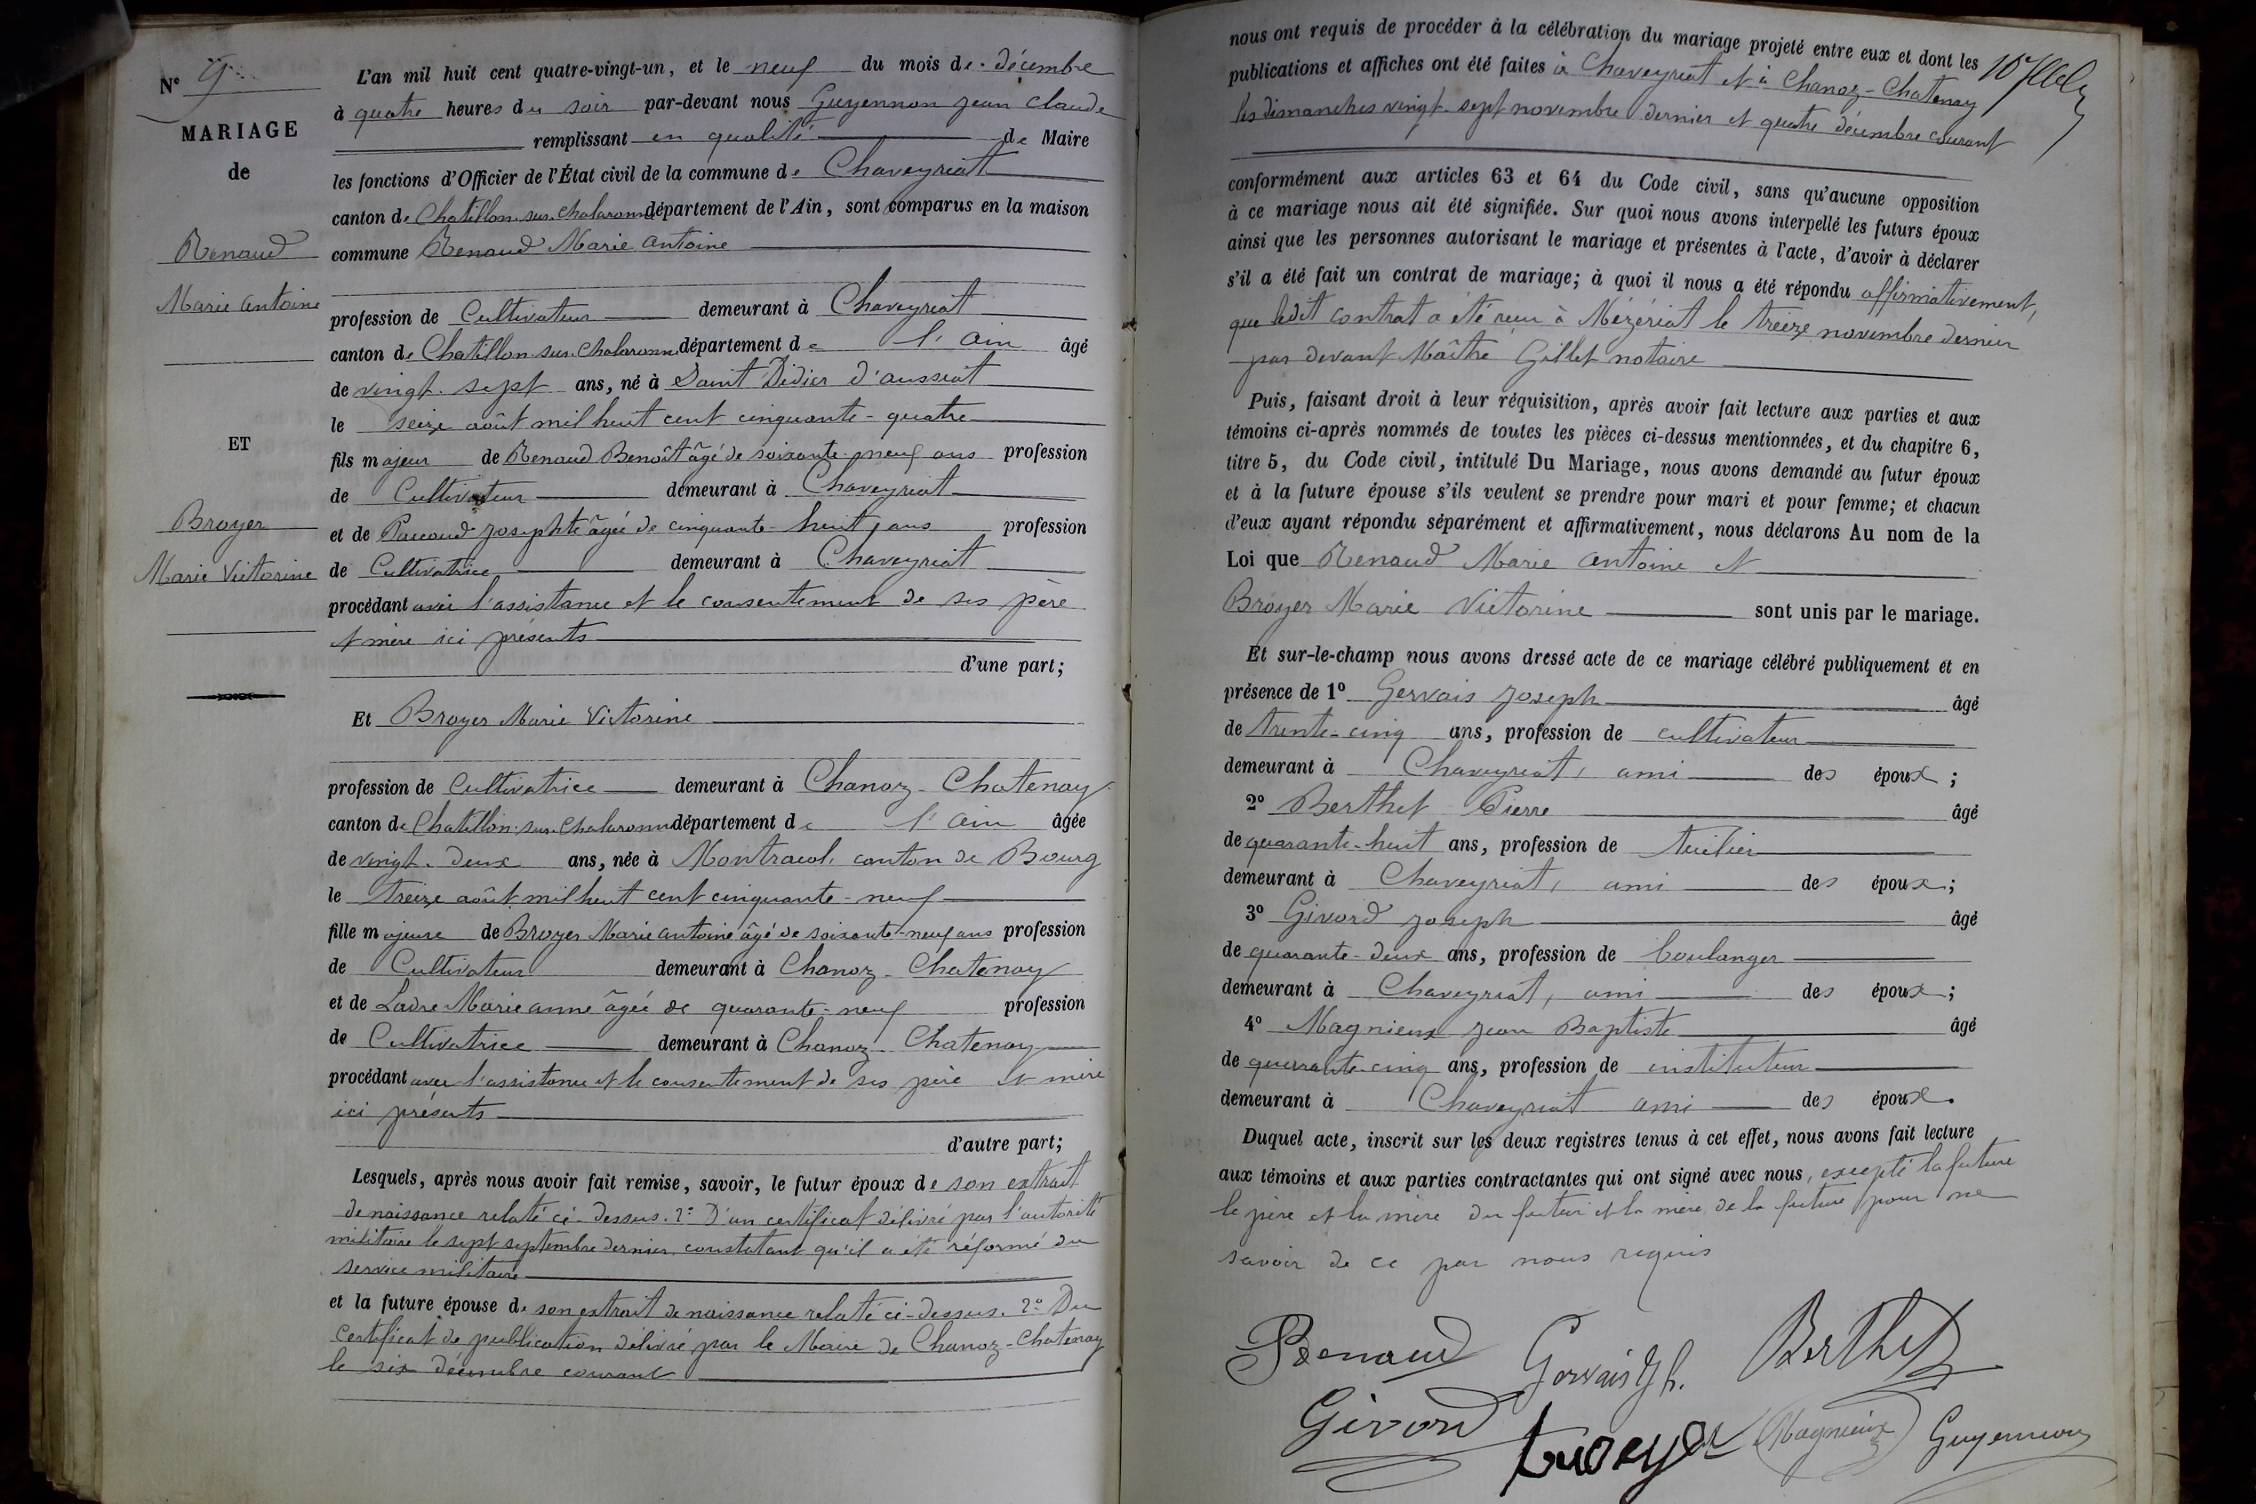 N° 9
MARIAGE
de
Renaud
Marie Antoine
ET
Broyer
Marie Victorine
L'an mil huit cent quatre-vingt-un, et le neuf du mois de décembre
à quatre heures du soir par-devant nous Guyennon Jean Claude
remplissant en qualité de Maire
les fonctions d'Officier de l'État civil de la commune de Chaveyriat
canton de Chatillon-sur-Chalaronne département de l'Ain, sont comparus en la maison
commune Renaud Marie Antoine
profession de Cultivateur demeurant à Chaveyriat
canton de Chatillon-sur-Chalaronne département de l'Ain âgé
de vingt-sept ans, né à Saint Didier d'aussiat
le seize août mil huit cent cinquante-quatre
fils majeur de Renaud Benoît âgé de soixante-neuf ans profession
de Cultivateur demeurant à Chaveyriat
et de Paccoud Josephte âgée de cinquante-huit ans profession
de Cultivatrice demeurant à Chaveyriat
procédant avec l'assistance et le consentement de ses père
et mère ici présents
d'une part;
Et Broyer Marie Victorine
profession de Cultivatrice demeurant à Chanoz-Chatenay
canton de Chatillon-sur-Chalaronne département de l'Ain âgée
de vingt-deux ans, née à Montracol, canton de Bourg
le treize août mil huit cent cinquante-neuf
fille majeure de Broyer Marie Antoine âgé de soixante-neuf ans profession
de Cultivateur demeurant à Chanoz-Chatenay
et de Ladre Marie anne âgée de quarante-neuf profession
de Cultivatrice demeurant à Chanoz-Chatenay
procédant avec l'assistance et le consentement de ses père et mère
ici présents
d'autre part;
Lesquels, après nous avoir fait remise, savoir, le futur époux de son extrait
de naissance relaté ci-dessus. 2° D'un certificat délivré par l'autorité
militaire le sept septembre dernier constatant qu'il a été réformé du
service militaire
et la future épouse de son extrait de naissance relaté ci-dessus. 2° Du
certificat de publication délivré par le Maire de Chanoz-Chatenay
le six décembre courant
nous ont requis de procéder à la célébration du mariage projeté entre eux et dont les
publications et affiches ont été faites à Chaveyriat et à Chanoz-Chatenay
les dimanches vingt-sept novembre dernier et quatre décembre courant
conformément aux articles 63 et 64 du Code civil, sans qu'aucune opposition
à ce mariage nous ait été signifiée. Sur quoi nous avons interpellé les futurs époux
ainsi que les personnes autorisant le mariage et présentes à l'acte, d'avoir à déclarer
s'il a été fait un contrat de mariage; à quoi il nous a été répondu affirmativement,
que ledit contrat a été reçu à Mézériat le treize novembre dernier
par devant Maître Gillet notaire
Puis, faisant droit à leur réquisition, après avoir fait lecture aux parties et aux
témoins ci-après nommés de toutes les pièces ci-dessus mentionnées, et du chapitre 6,
titre 5, du Code civil, intitulé Du Mariage, nous avons demandé au futur époux
et à la future épouse s'ils veulent se prendre pour mari et pour femme; et chacun
d'eux ayant répondu séparément et affirmativement, nous déclarons Au nom de la
Loi que Renaud Marie Antoine et
Broyer Marie Victorine sont unis par le mariage.
Et sur-le-champ nous avons dressé acte de ce mariage célébré publiquement et en
présence de 1° Gervais Joseph âgé
de trente-cinq ans, profession de cultivateur
demeurant à Chaveyriat, ami des époux;
2° Berthet Pierre âgé
de quarante-huit ans, profession de tuilier
demeurant à Chaveyriat, ami des époux;
3° Givord Joseph âgé
de quarante-deux ans, profession de boulanger
demeurant à Chaveyriat, ami des époux;
4° Magnieux Jean Baptiste âgé
de quarante-cinq ans, profession de instituteur
demeurant à Chaveyriat ami des époux.
Duquel acte, inscrit sur les deux registres tenus à cet effet, nous avons fait lecture
aux témoins et aux parties contractantes qui ont signé avec nous, excepté la future
le père et la mère du futur et la mère de la future pour ne
savoir de ce par nous requis
Renaud Gervais Jh. Berthet
Givord Broyer Magnieux Guyennon